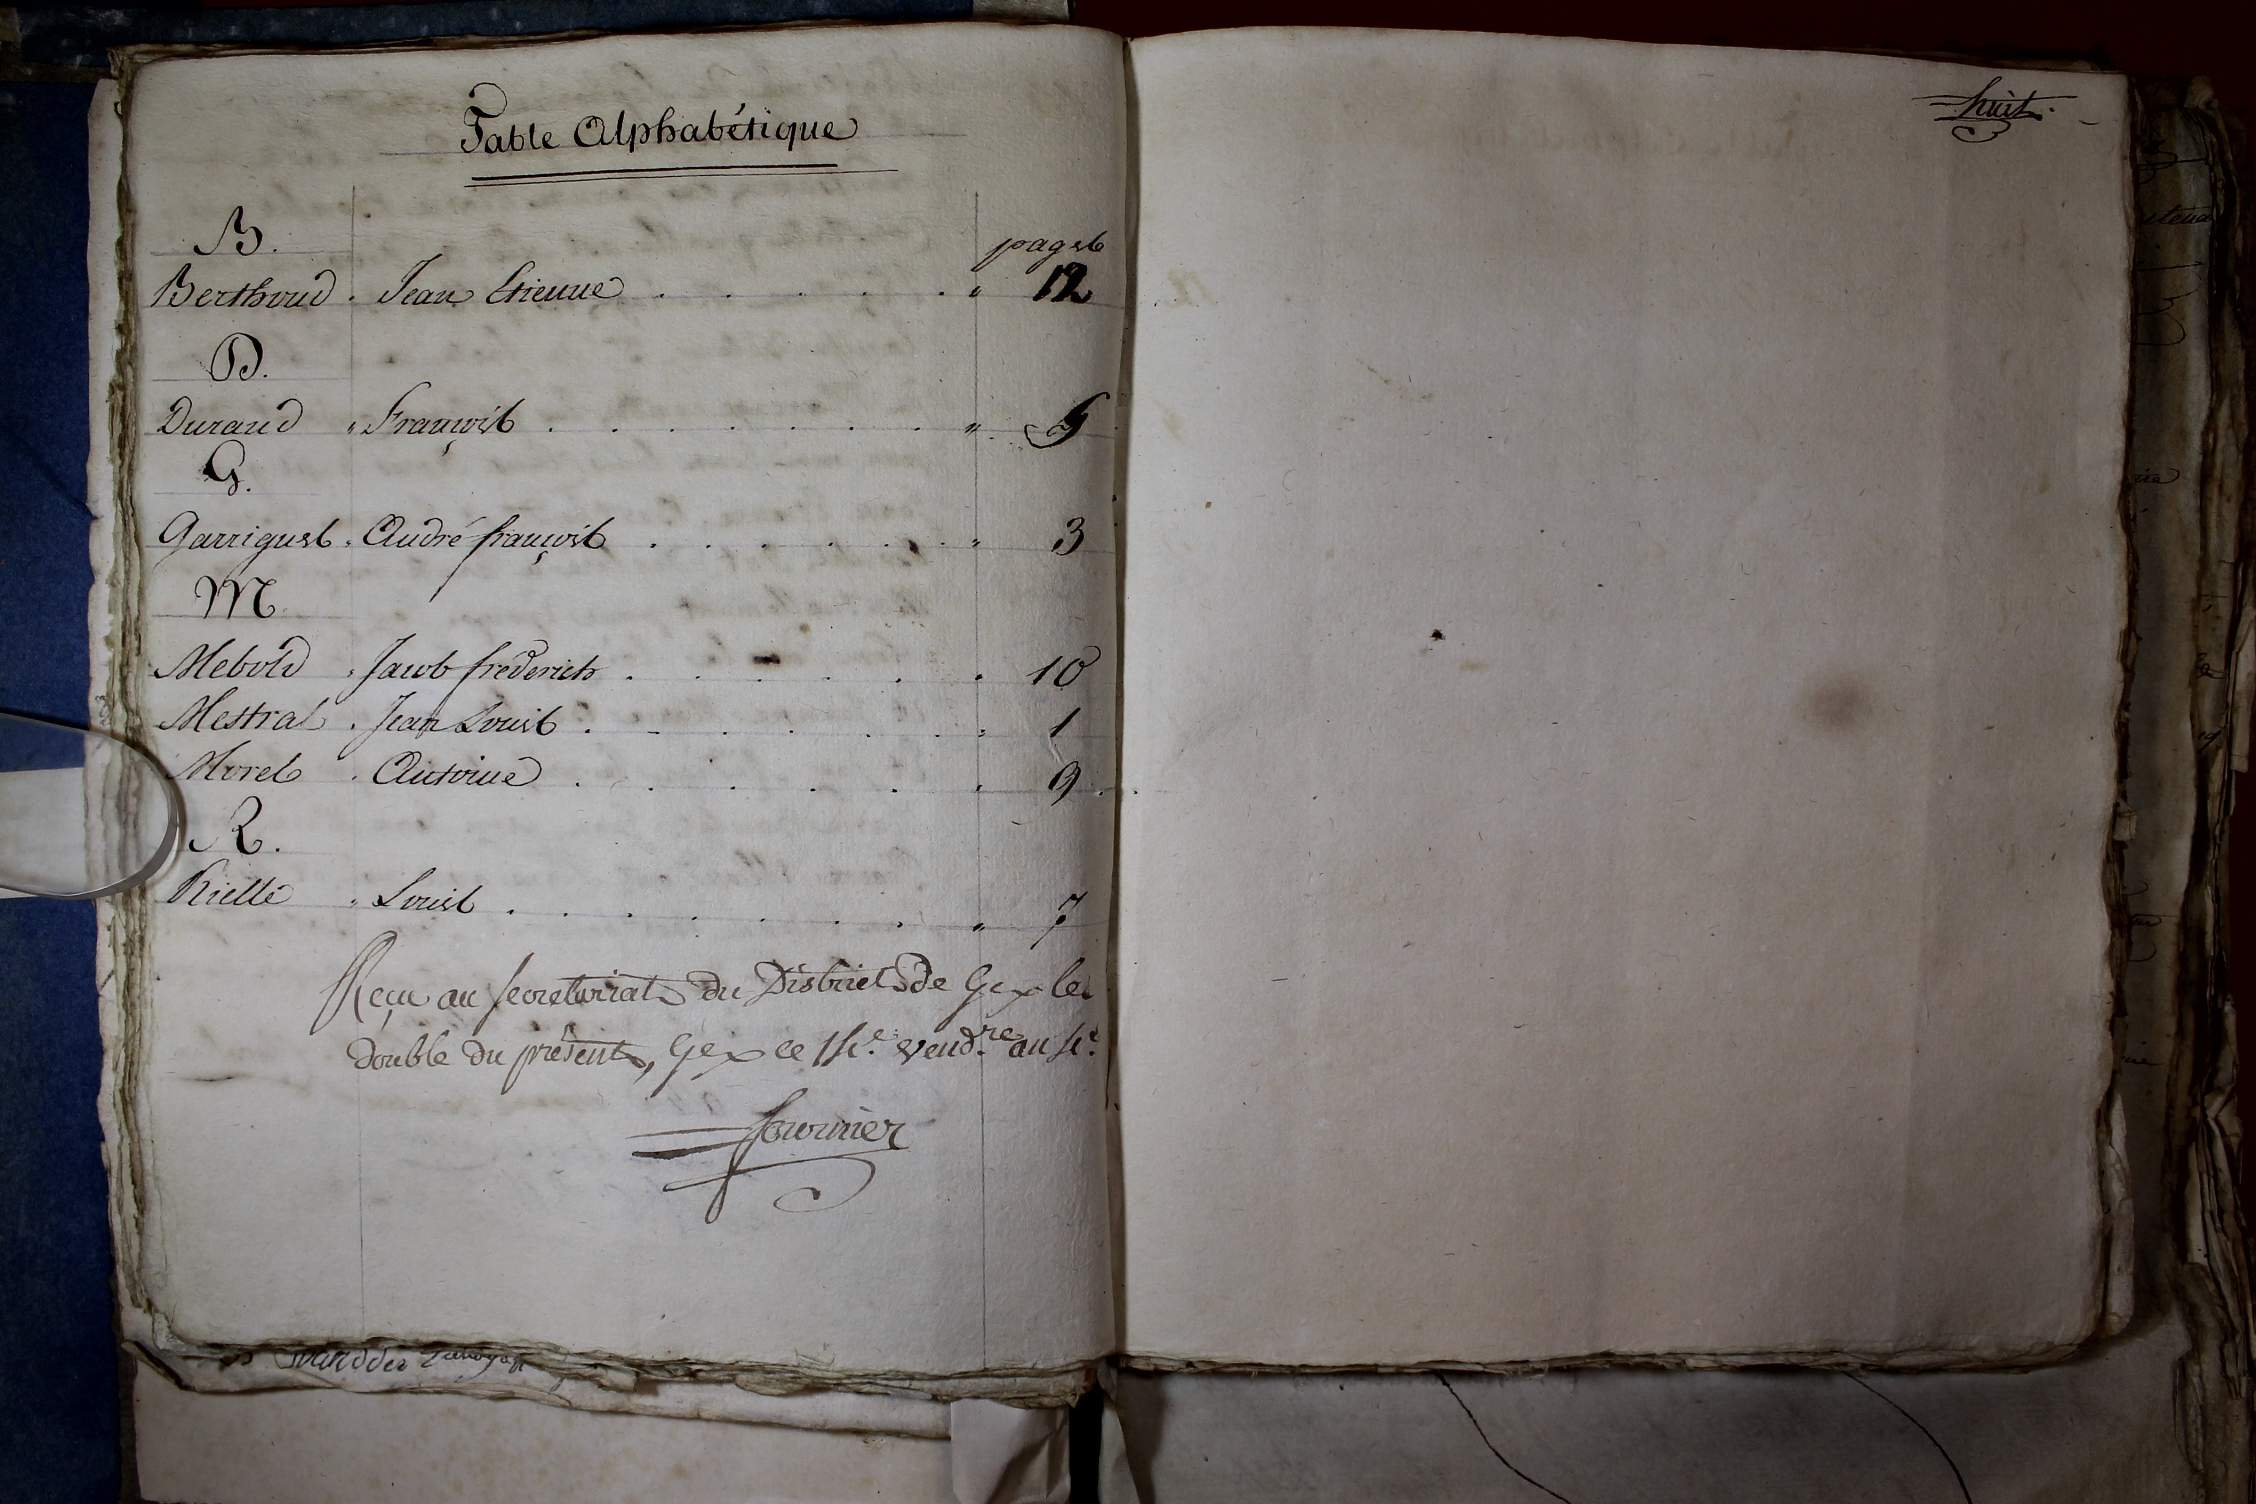 Table Alphabétique
B.
pages
Berthoud . Jean Etienne . . . . . . " 12
D.
Durand " François . . . . . . . " 5
G.
Garrigues . André françois . . . . . . " 3
M.
Mebold . Jacob fréderich . . . . . . 10
Mestral . Jean Louis . . . . . . . 1
Morel . Antoine . . . . . . 9
R.
Rielle " Louis . . . . . . . " 7
Reçu au secretariat du District de Gex le
double du présent, Gex ce 14.e vend.re an 4.e
fournier
huit.